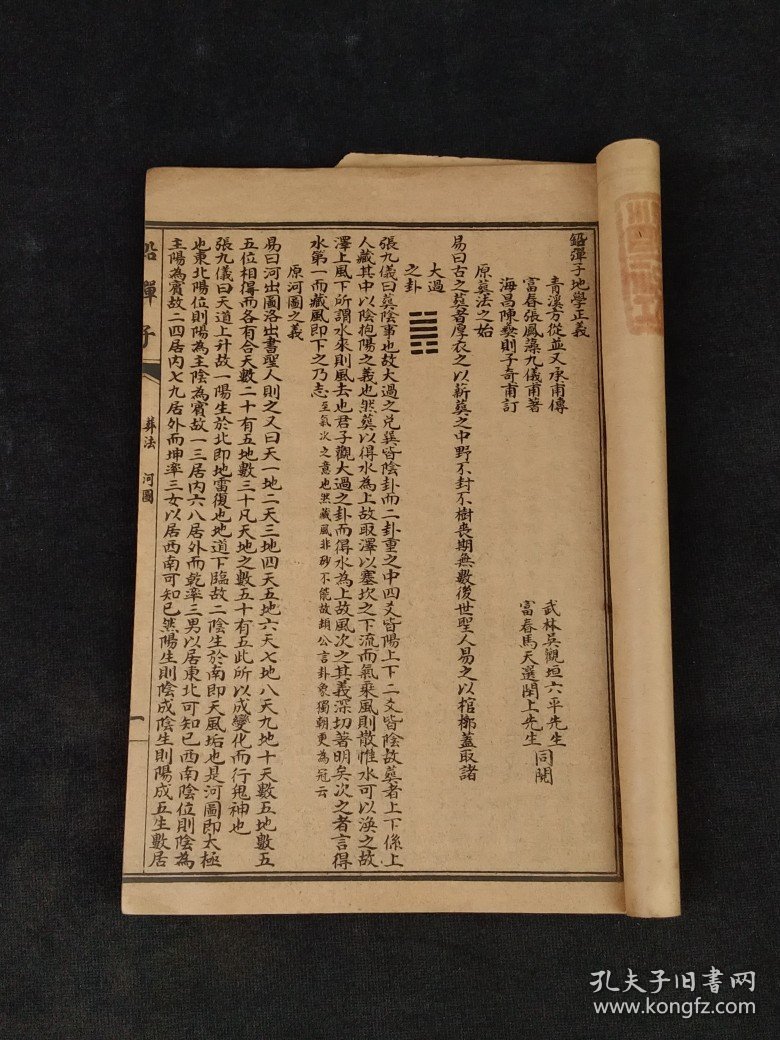 鉛彈子地學正義
青溪方從並又承甫傳
富春張鳳藻九儀甫著
海昌陳爕則子奇甫訂
武林吳觀垣六平先生
富春馬天選閑上先生
同閱
原葬法之始
易曰古之葬者厚衣之以薪葬之中野不封不樹喪期無數後世聖人易之以棺槨蓋取諸
大過
之卦
張九儀曰葬陰事也故大過之兑巽皆陰卦而二卦重之中四爻皆陽上下二爻皆陰故葬者上下係上
人藏其中以陰抱陽之義也然葬以得水為上故取澤以塞坎之下流而氣乘風則散惟水可以渙之故
澤上風下所謂水來則風去也君子觀大過之卦而得水為上故風次之其義深切著明矣次之者言得
水第一而藏風即下之乃志至氣次之意也然藏風非砂不能故頻公言卦象獨朝更為冠云
原河圖之義
易曰河出圖洛出書聖人則之又曰天一地二天三地四天五地六天七地八天九地十天數五地數五
五位相得而各有合天數二十有五地數三十凡天地之數五十有五此所以成變化而行鬼神也
張九儀曰天道上升故一陽生於北即地雷復也地道下臨故二陰生於南即天風垢也是河圖即太極
也東北陽位則陽為主陰為賓故一三居內六八居外而乾率三男以居東北可知已西南陰位則陰為
主陽為賓故二四居內七九居外而坤率三女以居西南可知已然陽生則陰成陰生則陽成五生數居
鉛彈子
葬法 河圖
一
孔夫子旧书网
www.kongfz.com